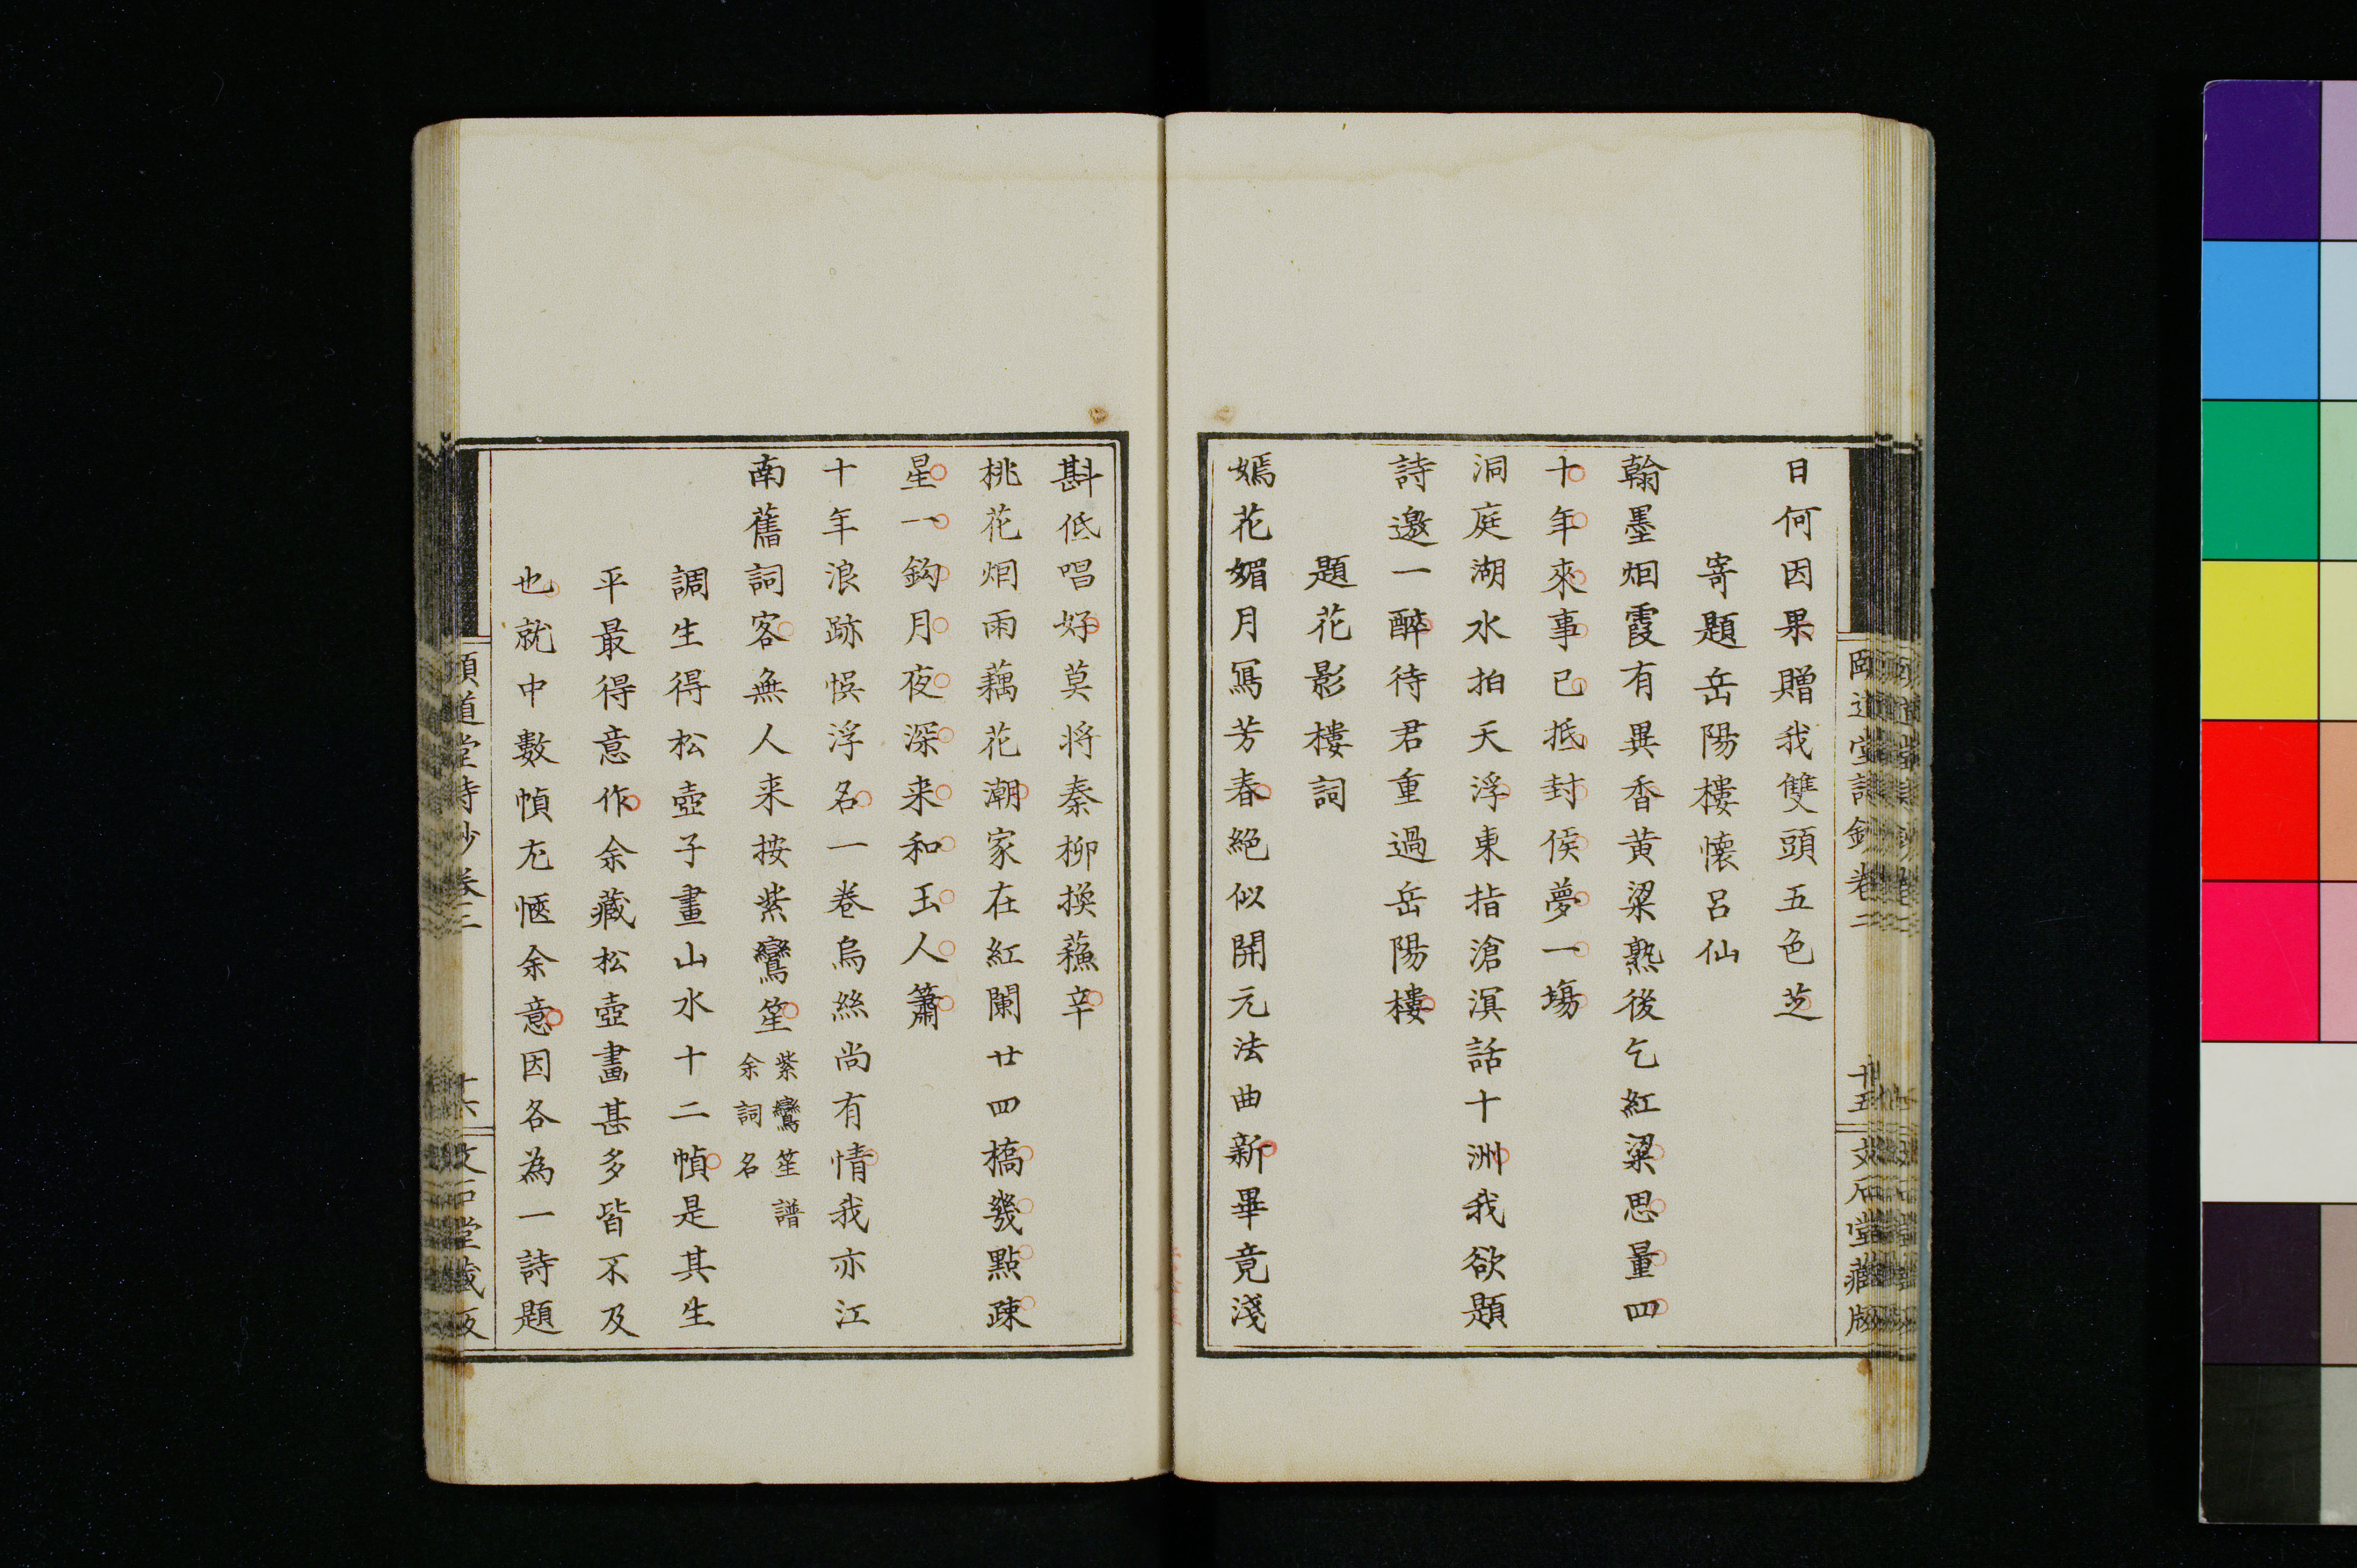 日何因果贈我雙頭五色芝
寄題岳陽樓懷呂仙
翰墨烟霞有異香黃粱熟後乞紅粱思量四
十年來事已抵封侯夢一場
洞庭湖水拍天浮東指滄溟話十洲我欲題
詩邀一醉待君重過岳陽樓
題花影樓詞
嫣花媚月寫芳春絕似開元法曲新畢竟淺
斟低唱好莫將秦柳換蘓辛
桃花烟雨藕花潮家在紅闌廿四橋幾點疎
星一鈎月夜深来和玉人簫
十年浪跡悞浮名一卷烏絲尚有情我亦江
南舊詞客無人来按紫鸞笙
紫鸞笙譜
余詞名
調生得松壺子畫山水十二幀是其生
平最得意作余藏松壺畫甚多皆不及
也就中數幀尤愜余意因各為一詩題
頤道堂詩鈔卷二
十五
文石堂藏版